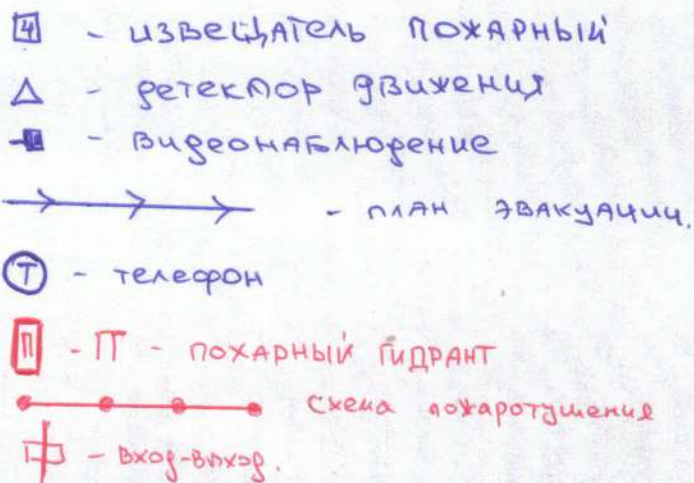 Ч - ИЗВЕЩАТЕЛЬ ПОЖАРНЫЙ
- детектор движения
- видеонаблюдение
- план эвакуации.
Т - телефон
П - П - ПОЖАРНЫЙ ГИДРАНТ
Схема пожаротушения
- вход-выход.